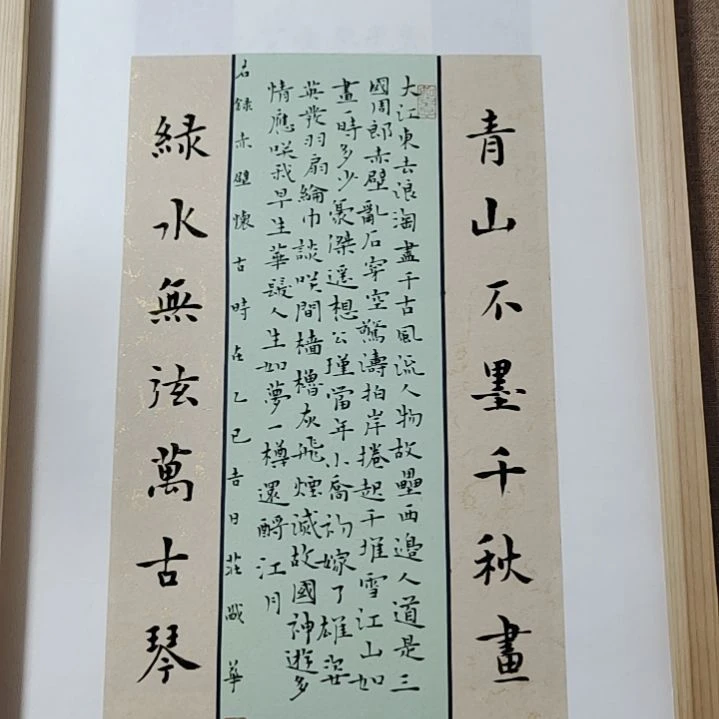 青山不墨千秋畫
大江東去浪淘盡千古風流人物故壘西邊人道是三
國周郎赤壁亂石穿空驚濤拍岸捲起千堆雪江山如
畫一時多少豪傑遙想公瑾當年小喬初嫁了雄姿
英發羽扇綸巾談咲間檣櫓灰飛煙滅故國神遊多
情應咲我早生華髮人生如夢一樽還酹江月
右錄赤壁懷古時在乙巳吉日莊華
綠水無弦萬古琴